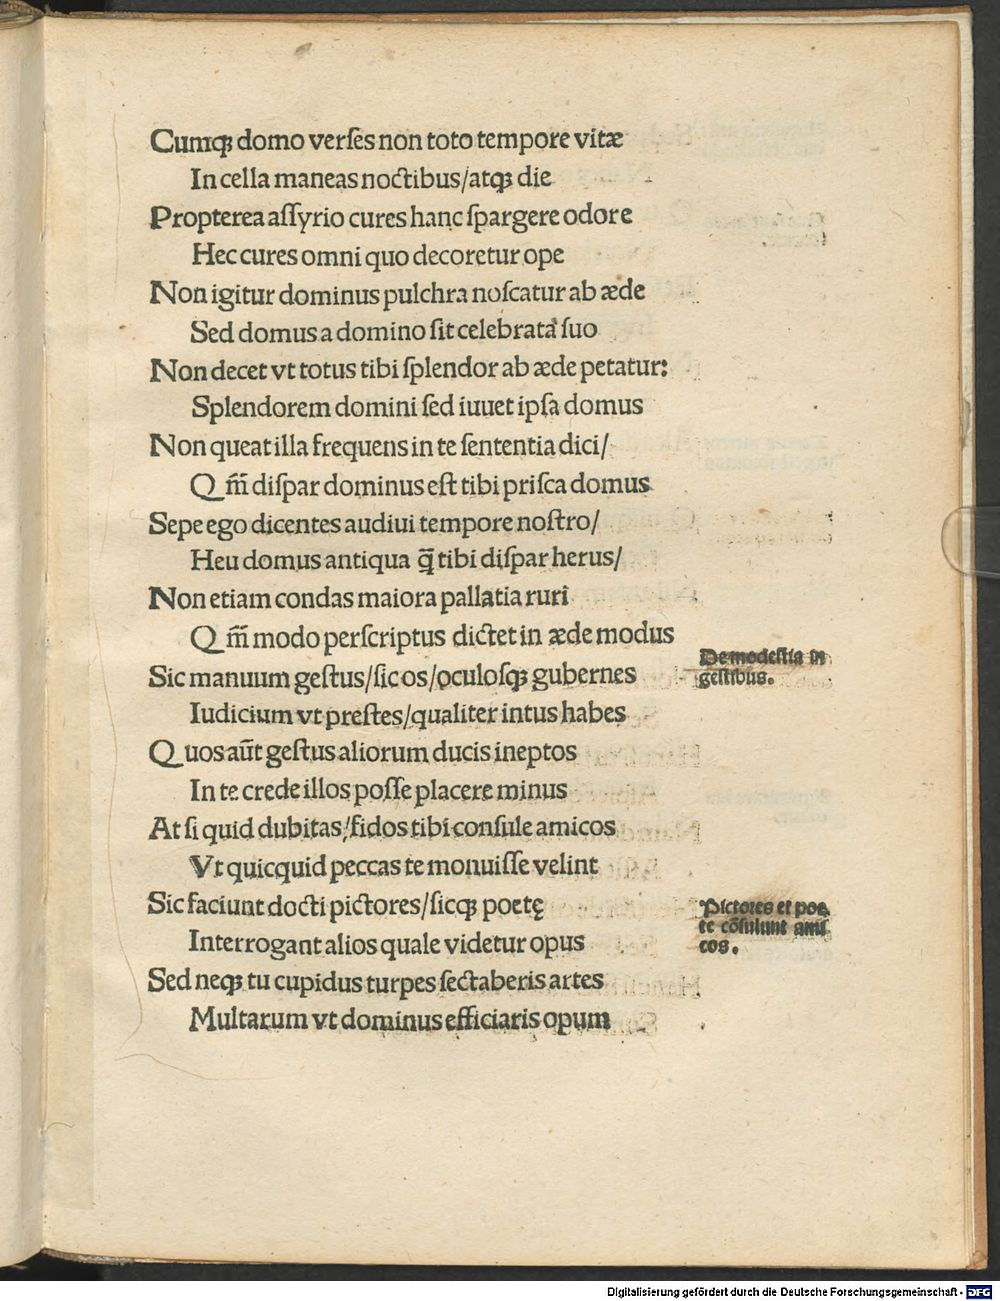 Cumqꝫ domo verſes non toto tempore vitæ
In cella maneas noctibus/atqꝫ die
Propterea aſſyrio cures hanc ſpargere odore
Hec cures omni quo decoretur ope
Non igitur dominus pulchra noſcatur ab æde
Sed domus a domino ſit celebrata ſuo
Non decet vt totus tibi ſplendor ab æde petatur:
Splendorem domini ſed iuuet ipſa domus
Non queat illa frequens in te ſententia dici/
Qm̃ diſpar dominus eſt tibi priſca domus
Sepe ego dicentes audiui tempore noſtro/
Heu domus antiqua q̃ tibi diſpar herus/
Non etiam condas maiora pallatia ruri
Qm̃ modo perſcriptus dictet in æde modus
De modeſtia in
geſtibus.
Sic manuum geſtus/ſic os/oculoſqꝫ gubernes
Iudicium vt preſtes/qualiter intus habes
Quos aũt geſtus aliorum ducis ineptos
In te crede illos poſſe placere minus
At ſi quid dubitas/fidos tibi conſule amicos
Vt quicquid peccas te monuiſſe velint
Sic faciunt docti pictores/ſicqꝫ poetę
Pictores et poe
te cõſulunt ami
cos.
Interrogant alios quale videtur opus
Sed neqꝫ tu cupidus turpes ſectaberis artes
Multarum vt dominus efficiaris opum
Digitalisierung gefördert durch die Deutsche Forschungsgemeinschaft - DFG